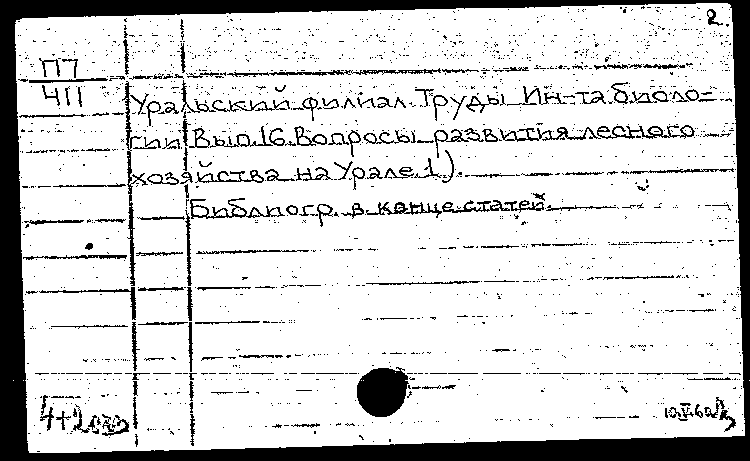 2.
П7
411
Уральский филиал. Труды Ин-та биоло-
гии Вып. 16. Вопросы развития лесного
хозяйства на Урале 1).
Библиогр. в конце статей.
4+2